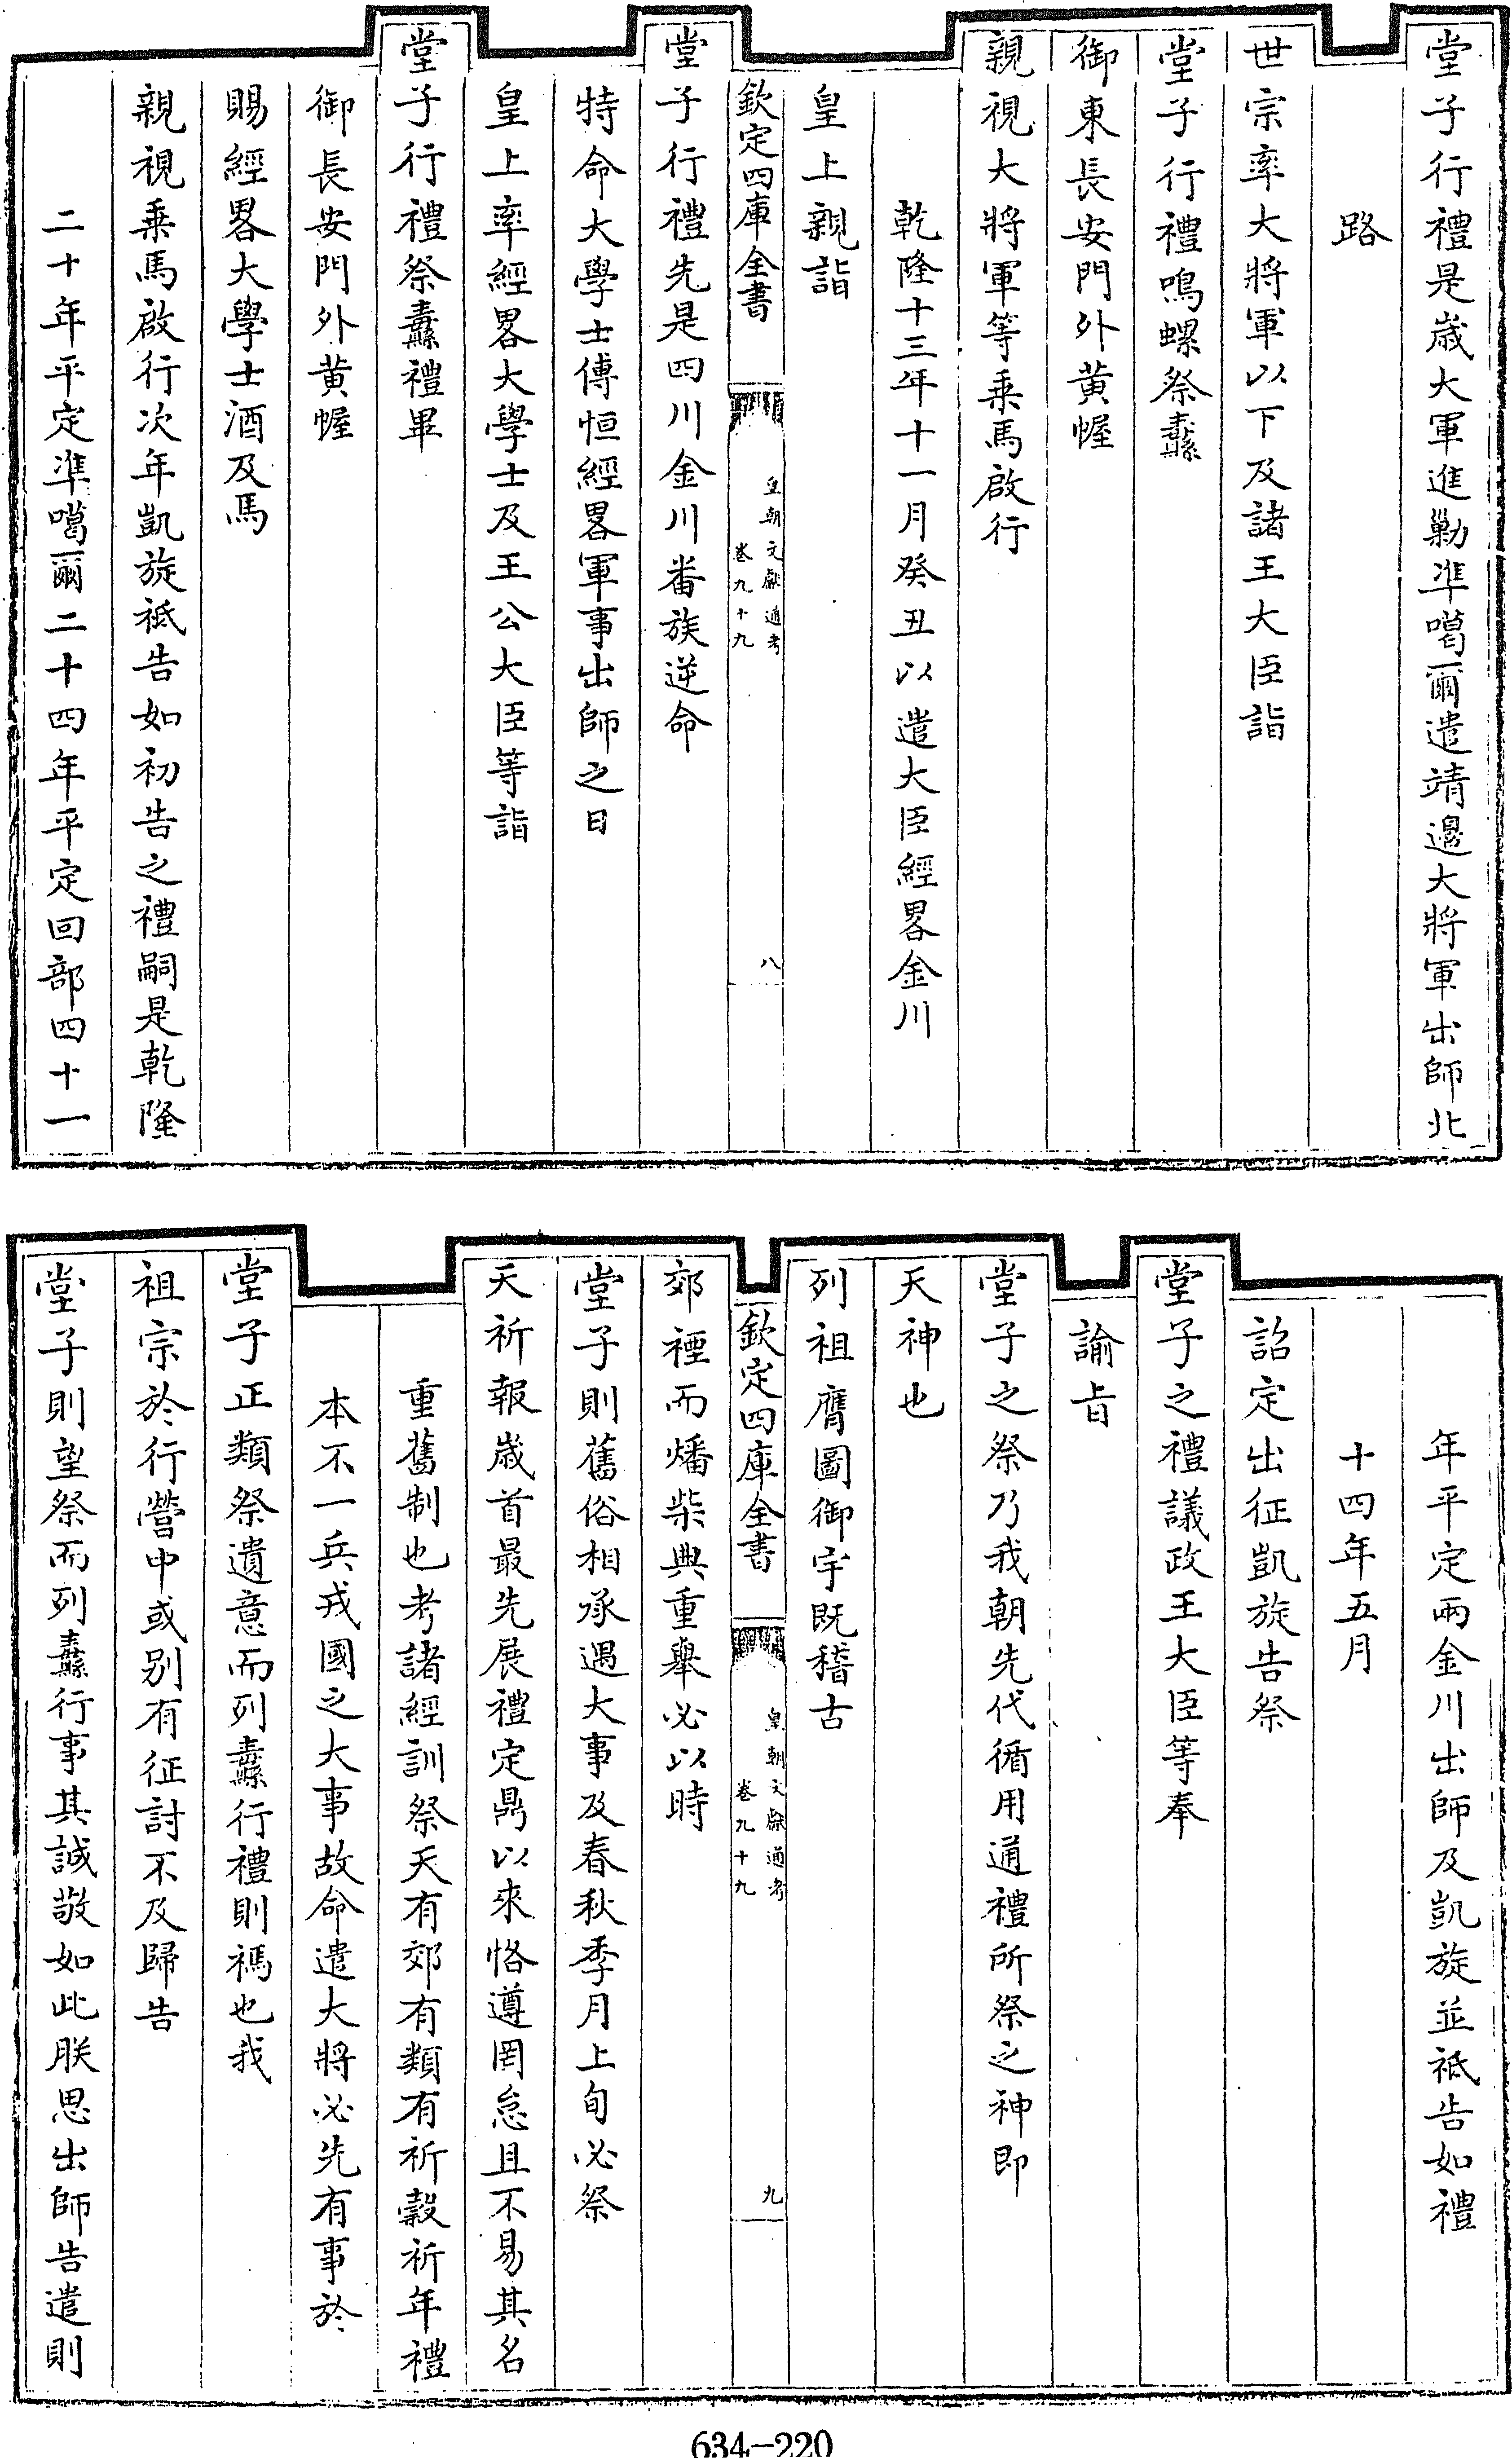 堂子行禮是歲大軍進勦準噶爾遣靖邊大將軍出師北
路
世宗率大將軍以下及諸王大臣詣
堂子行禮鳴螺祭纛
御東長安門外黄幄
親視大將軍等乗馬啟行
乾隆十三年十一月癸丑以遣大臣經畧金川
皇上親詣
欽定四庫全書
皇朝文獻通考
卷九十九
八
堂子行禮先是四川金川番族逆命
特命大學士傅恒經畧軍事出師之日
皇上率經畧大學士及王公大臣等詣
堂子行禮祭纛禮畢
御長安門外黄幄
賜經畧大學士酒及馬
親視乗馬啟行次年凱旋祗告如初告之禮嗣是乾隆
二十年平定準噶爾二十四年平定回部四十一
年平定兩金川出師及凱旋並祗告如禮
十四年五月
詔定出征凱旋告祭
堂子之禮議政王大臣等奉
諭㫖
堂子之祭乃我朝先代循用通禮所祭之神即
天神也
列祖膺圖御宇既稽古
欽定四庫全書
皇朝文獻通考
卷九十九
九
郊禋而燔柴典重舉必以時
堂子則舊俗相承遇大事及春秋季月上旬必祭
天祈報歲首最先展禮定鼎以來恪遵罔怠且不易其名
重舊制也考諸經訓祭天有郊有類有祈穀祈年禮
本不一兵戎國之大事故命遣大將必先有事於
堂子正類祭遺意而列纛行禮則禡也我
祖宗於行營中或别有征討不及歸告
堂子則望祭而列纛行事其誠敬如此朕思出師告遣則
634-220